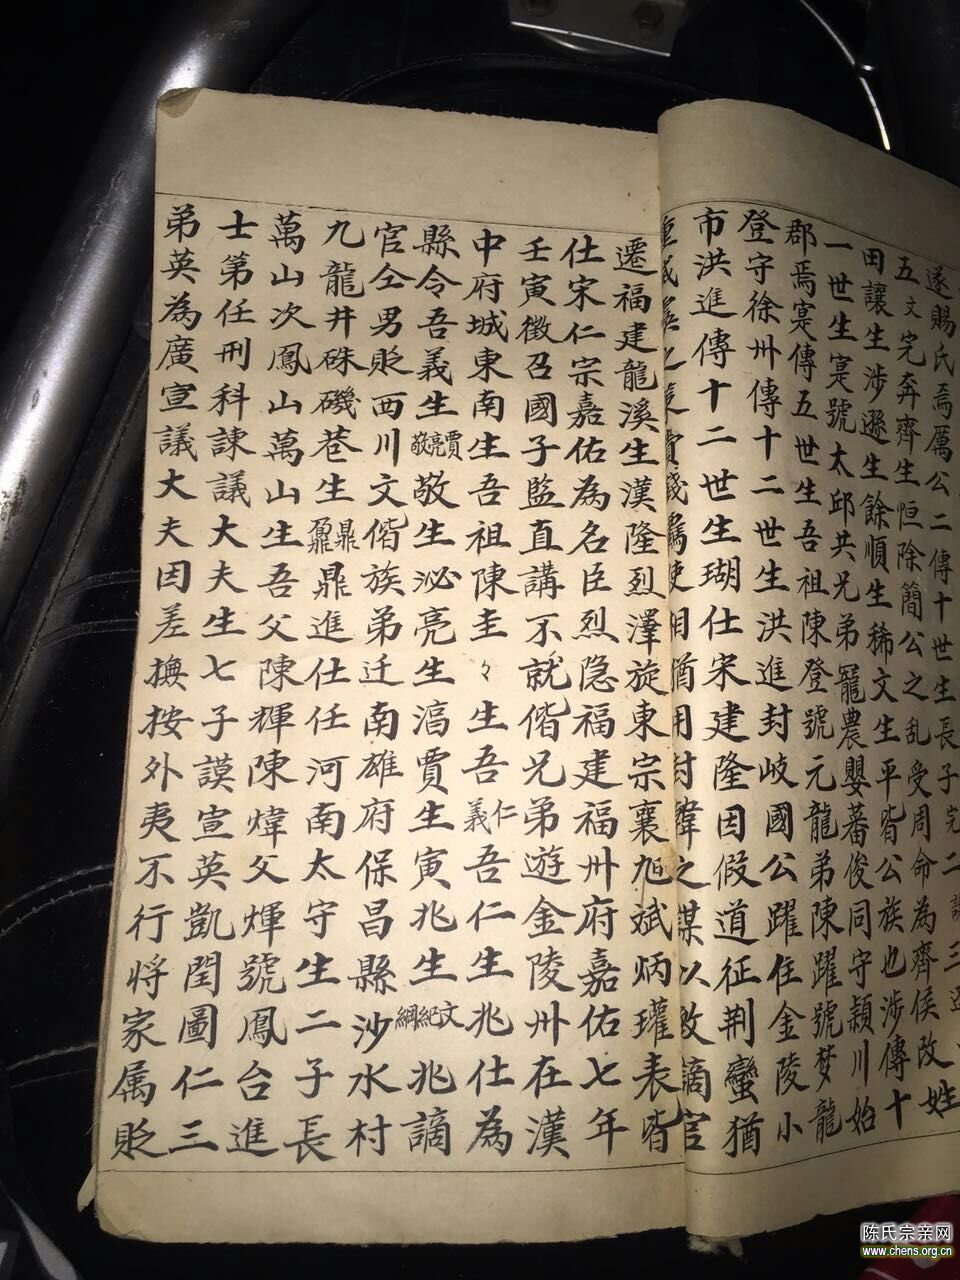 遂賜氏焉厲公二傳十世生長子完二
五文完奔齊生恒除簡公之乱受周命為齊侯改姓
田讓生涉遜生餘順生稀文生平皆公族也涉傳十
一世生寔號太邱共兄弟寵農嬰蕃俊同守穎川始
郡焉寔傳五世生吾祖陳登號元龍弟陳躍號梦龍
登守徐卅傳十二世生洪進封岐國公躍住金陵小
市洪進傳十二世生瑚仕宋建隆因假道征荆蠻猶
之謀以敗謫官
遷福建龍溪生漢隆烈澤旋東宗襄旭斌炳瓘表皆
仕宋仁宗嘉佑為名臣烈隐福建福卅府嘉佑七年
壬寅徵召國子監直講不就偕兄弟遊金陵卅在漢
中府城東南生吾祖陳圭々生吾仁義吾仁生兆仕為
縣令吾義生賈亮敬敬生泌亮生滈賈生寅兆生文紀綱兆謫
官仝男貶西川文偕族弟迁南雄府保昌縣沙水村
九龍井硃磯巷生鼎鼐鼎進仕任河南太守生二子長
萬山次鳳山萬山生吾父陳輝陳煒父煇號鳳台進
士第任刑科諫議大夫生七子謨宣英凱閏圖仁三
弟英為廣宣議大夫因差撫按外夷不行将家属貶
陈氏宗亲网
www.chens.org.cn